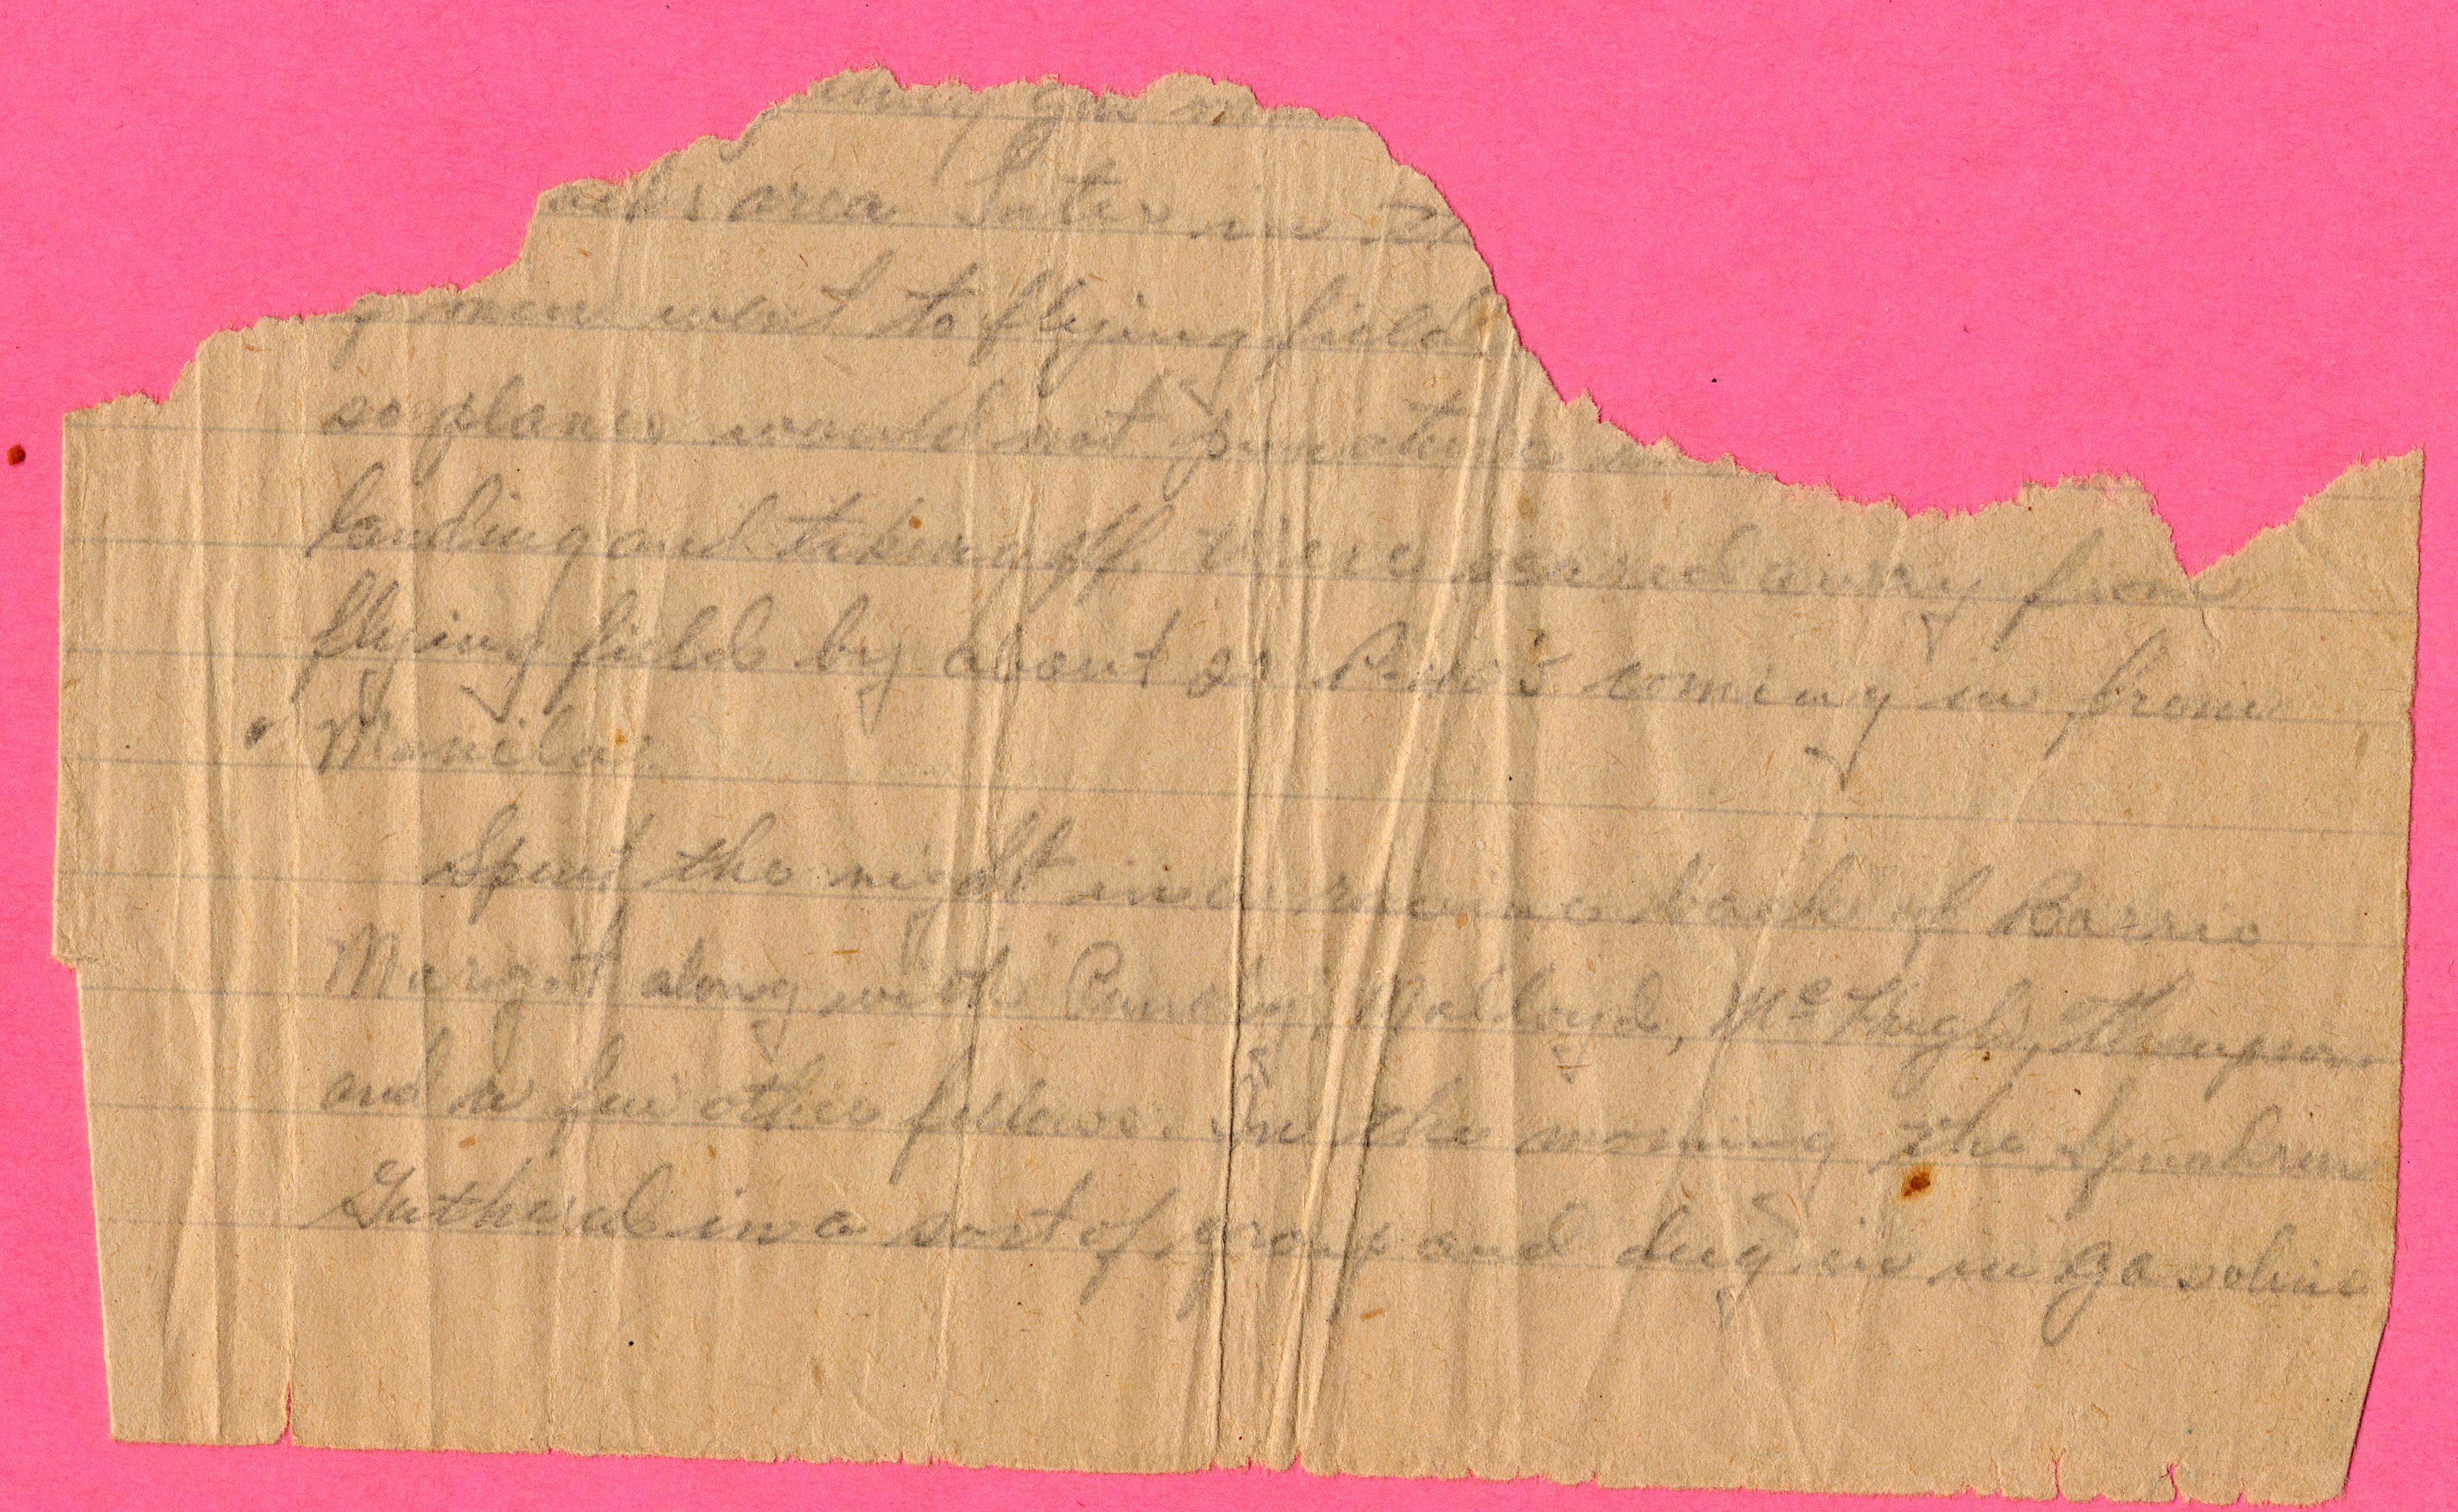 area Later in
men went to flying field
so planes would not puncture
landing and taking off. Were scared away from
flying field by about 21 P-40's coming in from
Manila.
Spent the night in a ravine back of Barrio
Margot along with Purdy, McHugh, Thompson
and a few other fellows. In the morning the Squadron
Gathered in a sort of group and dug in in gasoline